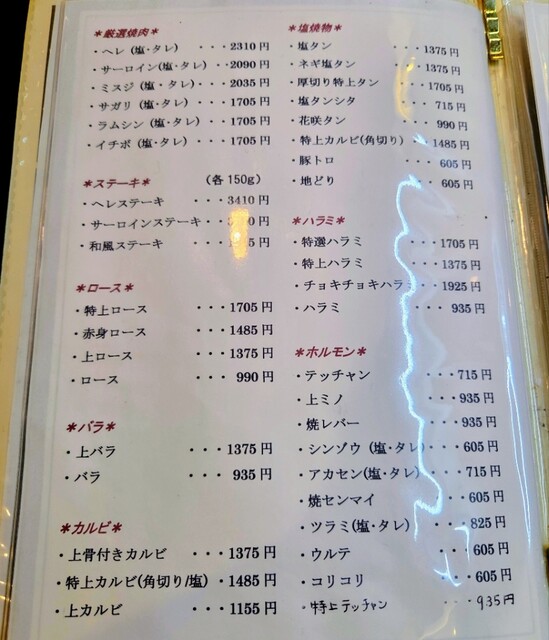 ＊厳選焼肉＊
・ヘレ (塩・タレ) ・・・2310円
・サーロイン(塩・タレ) ・・2090円
・ミスジ (塩・タレ) ・・・2035円
・サガリ (塩・タレ) ・・・1705円
・ラムシン (塩・タレ) ・・・1705円
・イチボ (塩・タレ) ・・・1705円
＊ステーキ＊ (各150g)
・ヘレステーキ ・・・3410円
・サーロインステーキ・・ 円
・和風ステーキ ・・・ 円
＊ロース＊
・特上ロース ・・・1705円
・赤身ロース ・・・1485円
・上ロース ・・・1375円
・ロース ・・・ 990円
＊バラ＊
・上バラ ・・・1375円
・バラ ・・・ 935円
＊カルビ＊
・上骨付きカルビ ・・・1375円
・特上カルビ(角切り/塩) ・1485円
・上カルビ ・・・1155円
＊塩焼物＊
・塩タン ・・・1375円
・ネギ塩タン ・・・1375円
・厚切り特上タン ・・・1705円
・塩タンシタ ・・・ 715円
・花咲タン ・・・ 990円
・特上カルビ(角切り) ・・1485円
・豚トロ ・・・ 605円
・地どり ・・・ 605円
＊ハラミ＊
・特選ハラミ ・・・1705円
・特上ハラミ ・・・1375円
・チョキチョキハラミ・・1925円
・ハラミ ・・・ 935円
＊ホルモン＊
・テッチャン ・・・715円
・上ミノ ・・・935円
・焼レバー ・・・935円
・シンゾウ (塩・タレ)・・・605円
・アカセン(塩・タレ) ・・・715円
・焼センマイ ・・・605円
・ツラミ(塩・タレ) ・・・825円
・ウルテ ・・・605円
・コリコリ ・・・605円
・特上テッチャン ・・・935円